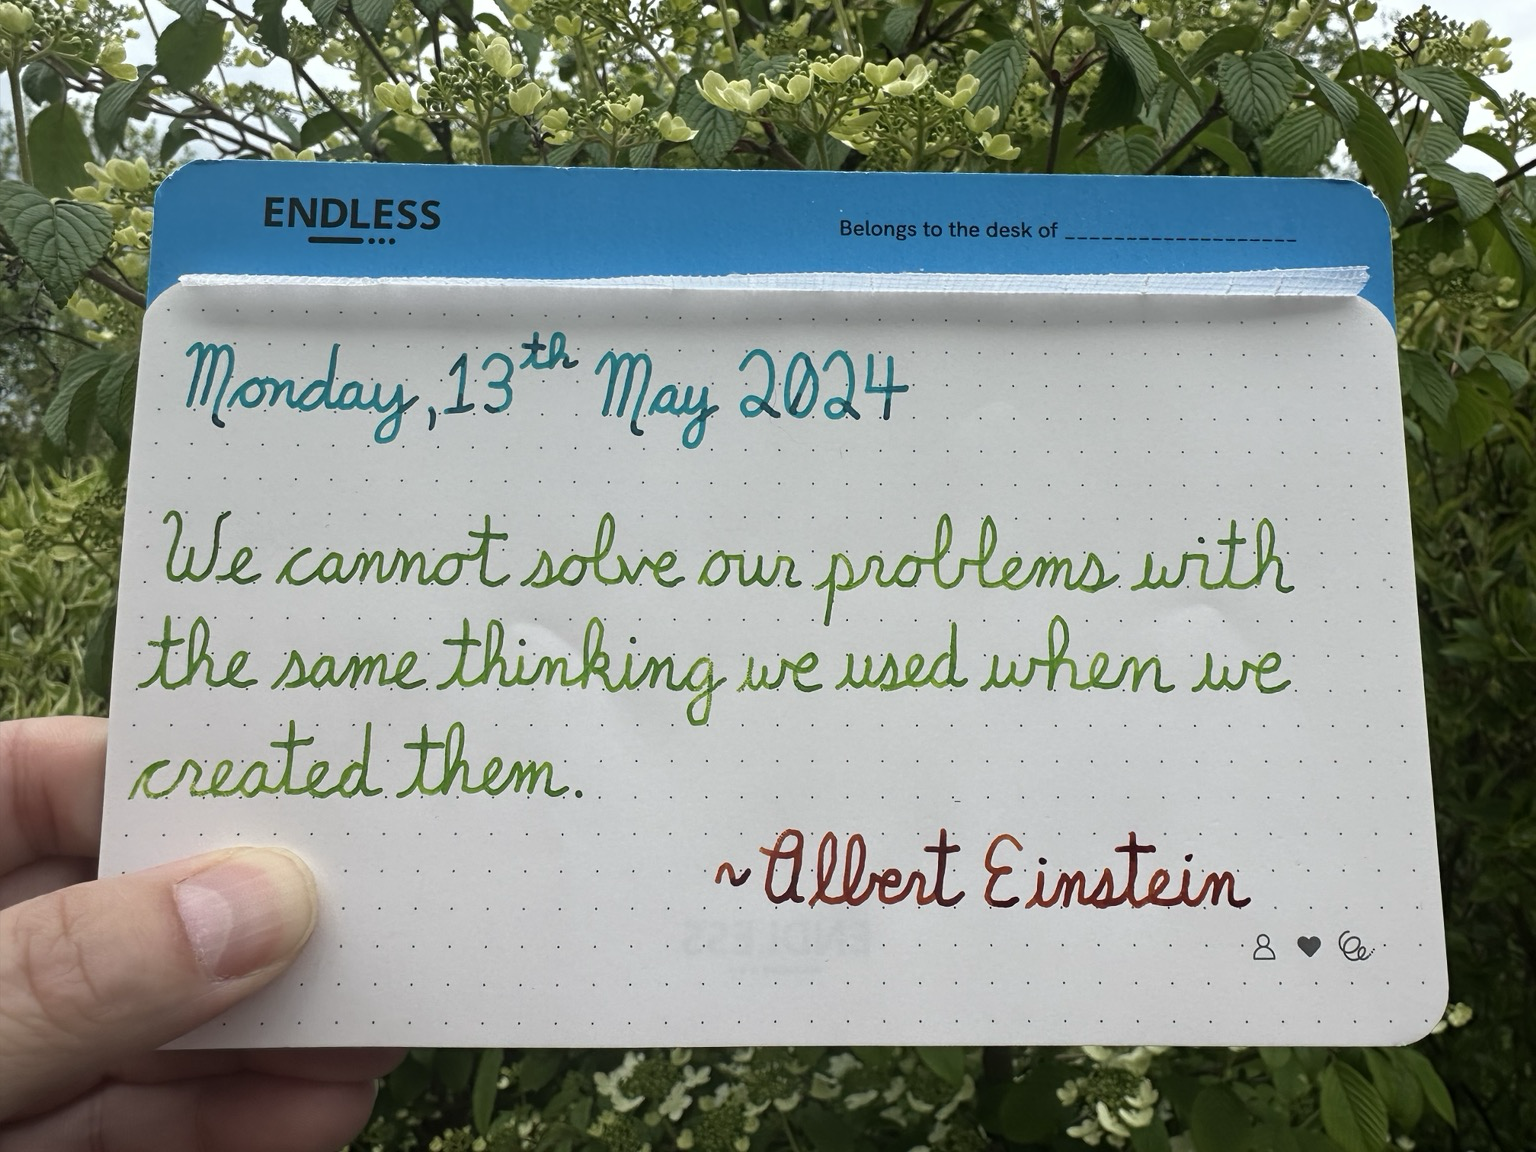 ENDLESS
Belongs to the desk of ____________________
Monday, 13th May 2024
We cannot solve our problems with
the same thinking we used when we
created them.
~Albert Einstein
ENDLESS